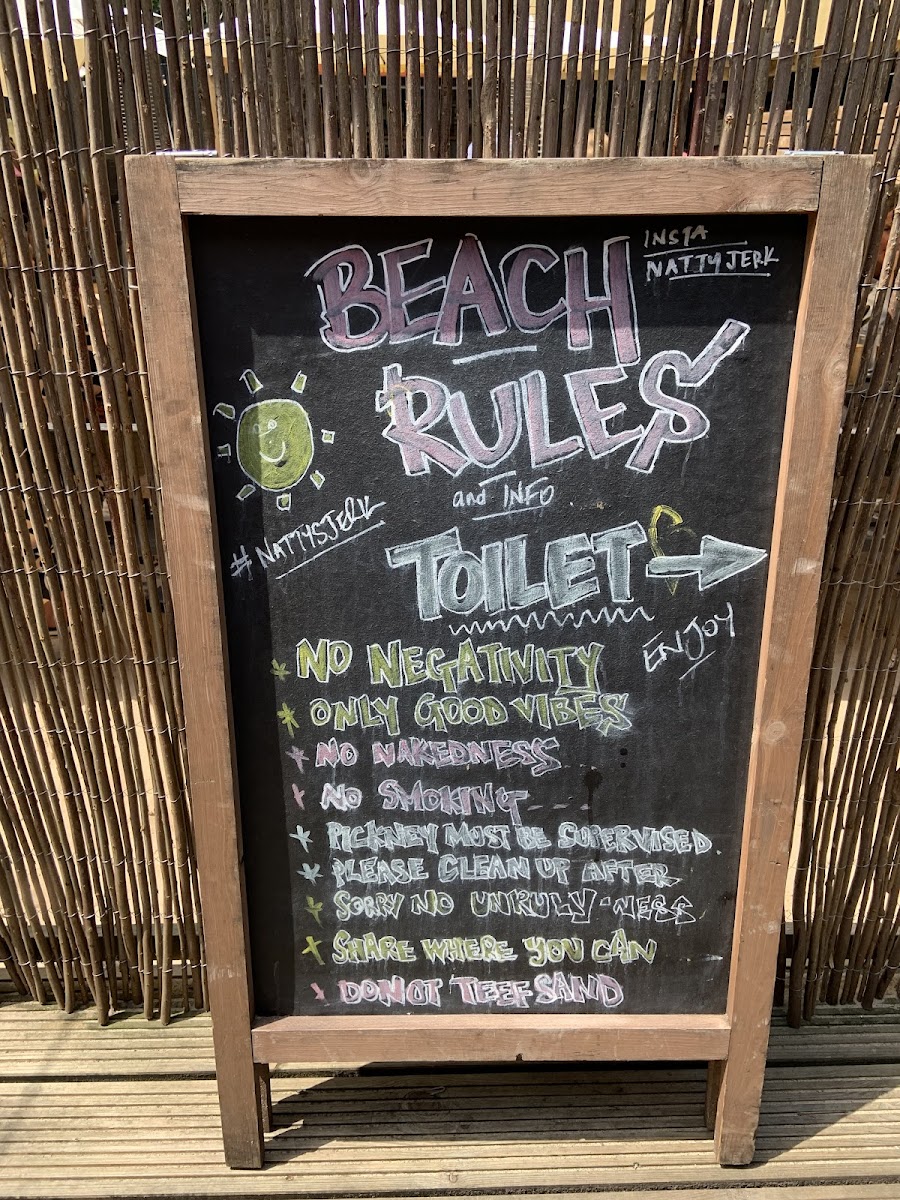 INSTA
NATTYJERK
BEACH
RULES
and INFO
#NATTYSJERK
TOILET →
ENJOY
* NO NEGATIVITY
* ONLY GOOD VIBES
* NO NAKEDNESS
* NO SMOKING
* PICKNEY MUST BE SUPERVISED.
* PLEASE CLEAN UP AFTER
* SORRY NO UNRULY-NESS
* SHARE WHERE YOU CAN
* DO NOT TEEF SAND